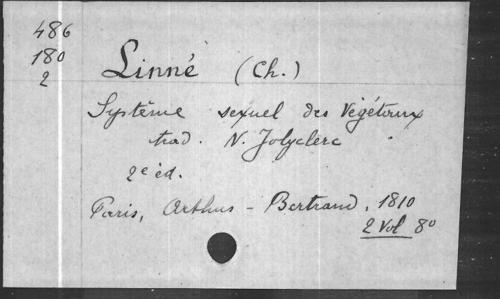 486
180
2
Linné (Ch.)
Système sexuel des Végétaux
trad. N. Jolyclerc
2e éd.
Paris, Arthus-Bertrand, 1810
2 Vol 8o